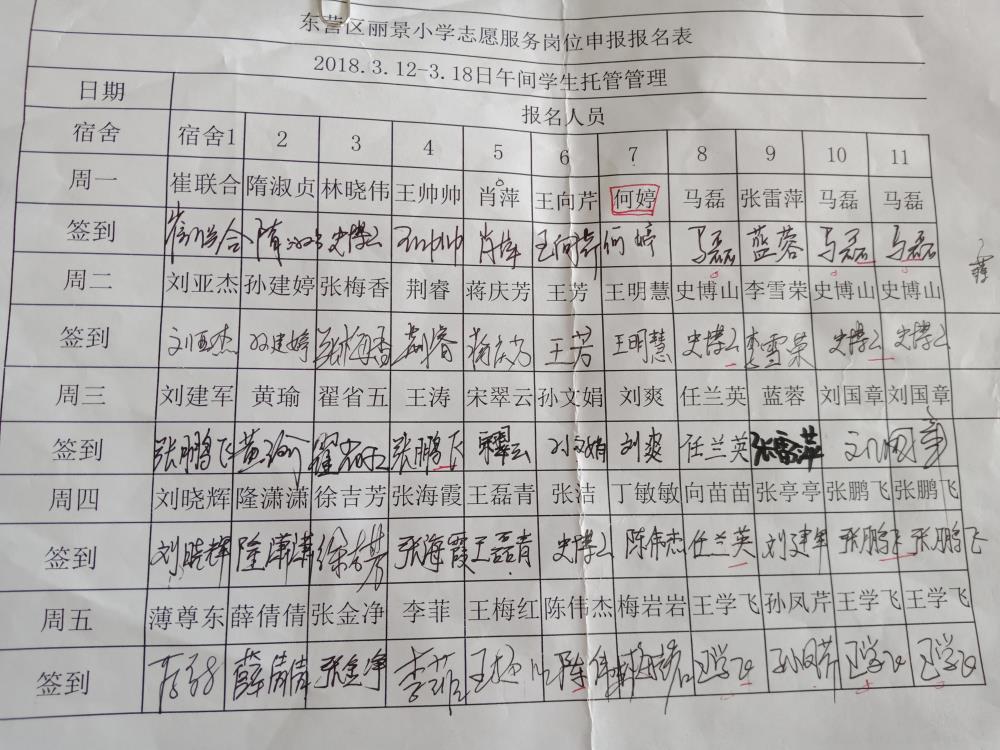 东营区丽景小学志愿服务岗位申报报名表
2018.3.12-3.18日午间学生托管管理
日期 报名人员
宿舍 宿舍1 2 3 4 5 6 7 8 9 10 11
周一 崔联合 隋淑贞 林晓伟 王帅帅 肖萍 王向芹 何婷 马磊 张雷萍 马磊 马磊
签到 崔联合 隋 史博山 王帅帅 肖萍 王向芹 何婷 马磊 蓝蓉 马磊 马磊
周二 刘亚杰 孙建婷 张梅香 荆睿 蒋庆芳 王芳 王明慧 史博山 李雪荣 史博山 史博山
签到 刘亚杰 孙建婷 张梅香 荆睿 蒋庆芳 王芳 王明慧 史博山 李雪荣 史博山 史博山
周三 刘建军 黄瑜 翟省五 王涛 宋翠云 孙文娟 刘爽 任兰英 蓝蓉 刘国章 刘国章
签到 张鹏飞 黄瑜 翟省五 张鹏飞 宋翠云 孙文娟 刘爽 任兰英 张雷萍 刘国章
周四 刘晓辉 隆潇潇 徐吉芳 张海霞 王磊青 张洁 丁敏敏 向苗苗 张亭亭 张鹏飞 张鹏飞
签到 刘晓辉 隆潇潇 徐吉芳 张海霞 王磊青 史博山 陈伟杰 任兰英 刘建军 张鹏飞 张鹏飞
周五 薄尊东 薛倩倩 张金净 李菲 王梅红 陈伟杰 梅岩岩 王学飞 孙凤芹 王学飞 王学飞
签到 薛倩倩 张金净 李菲 王梅红 陈伟杰 梅岩岩 王学飞 孙凤芹 王学飞 王学飞